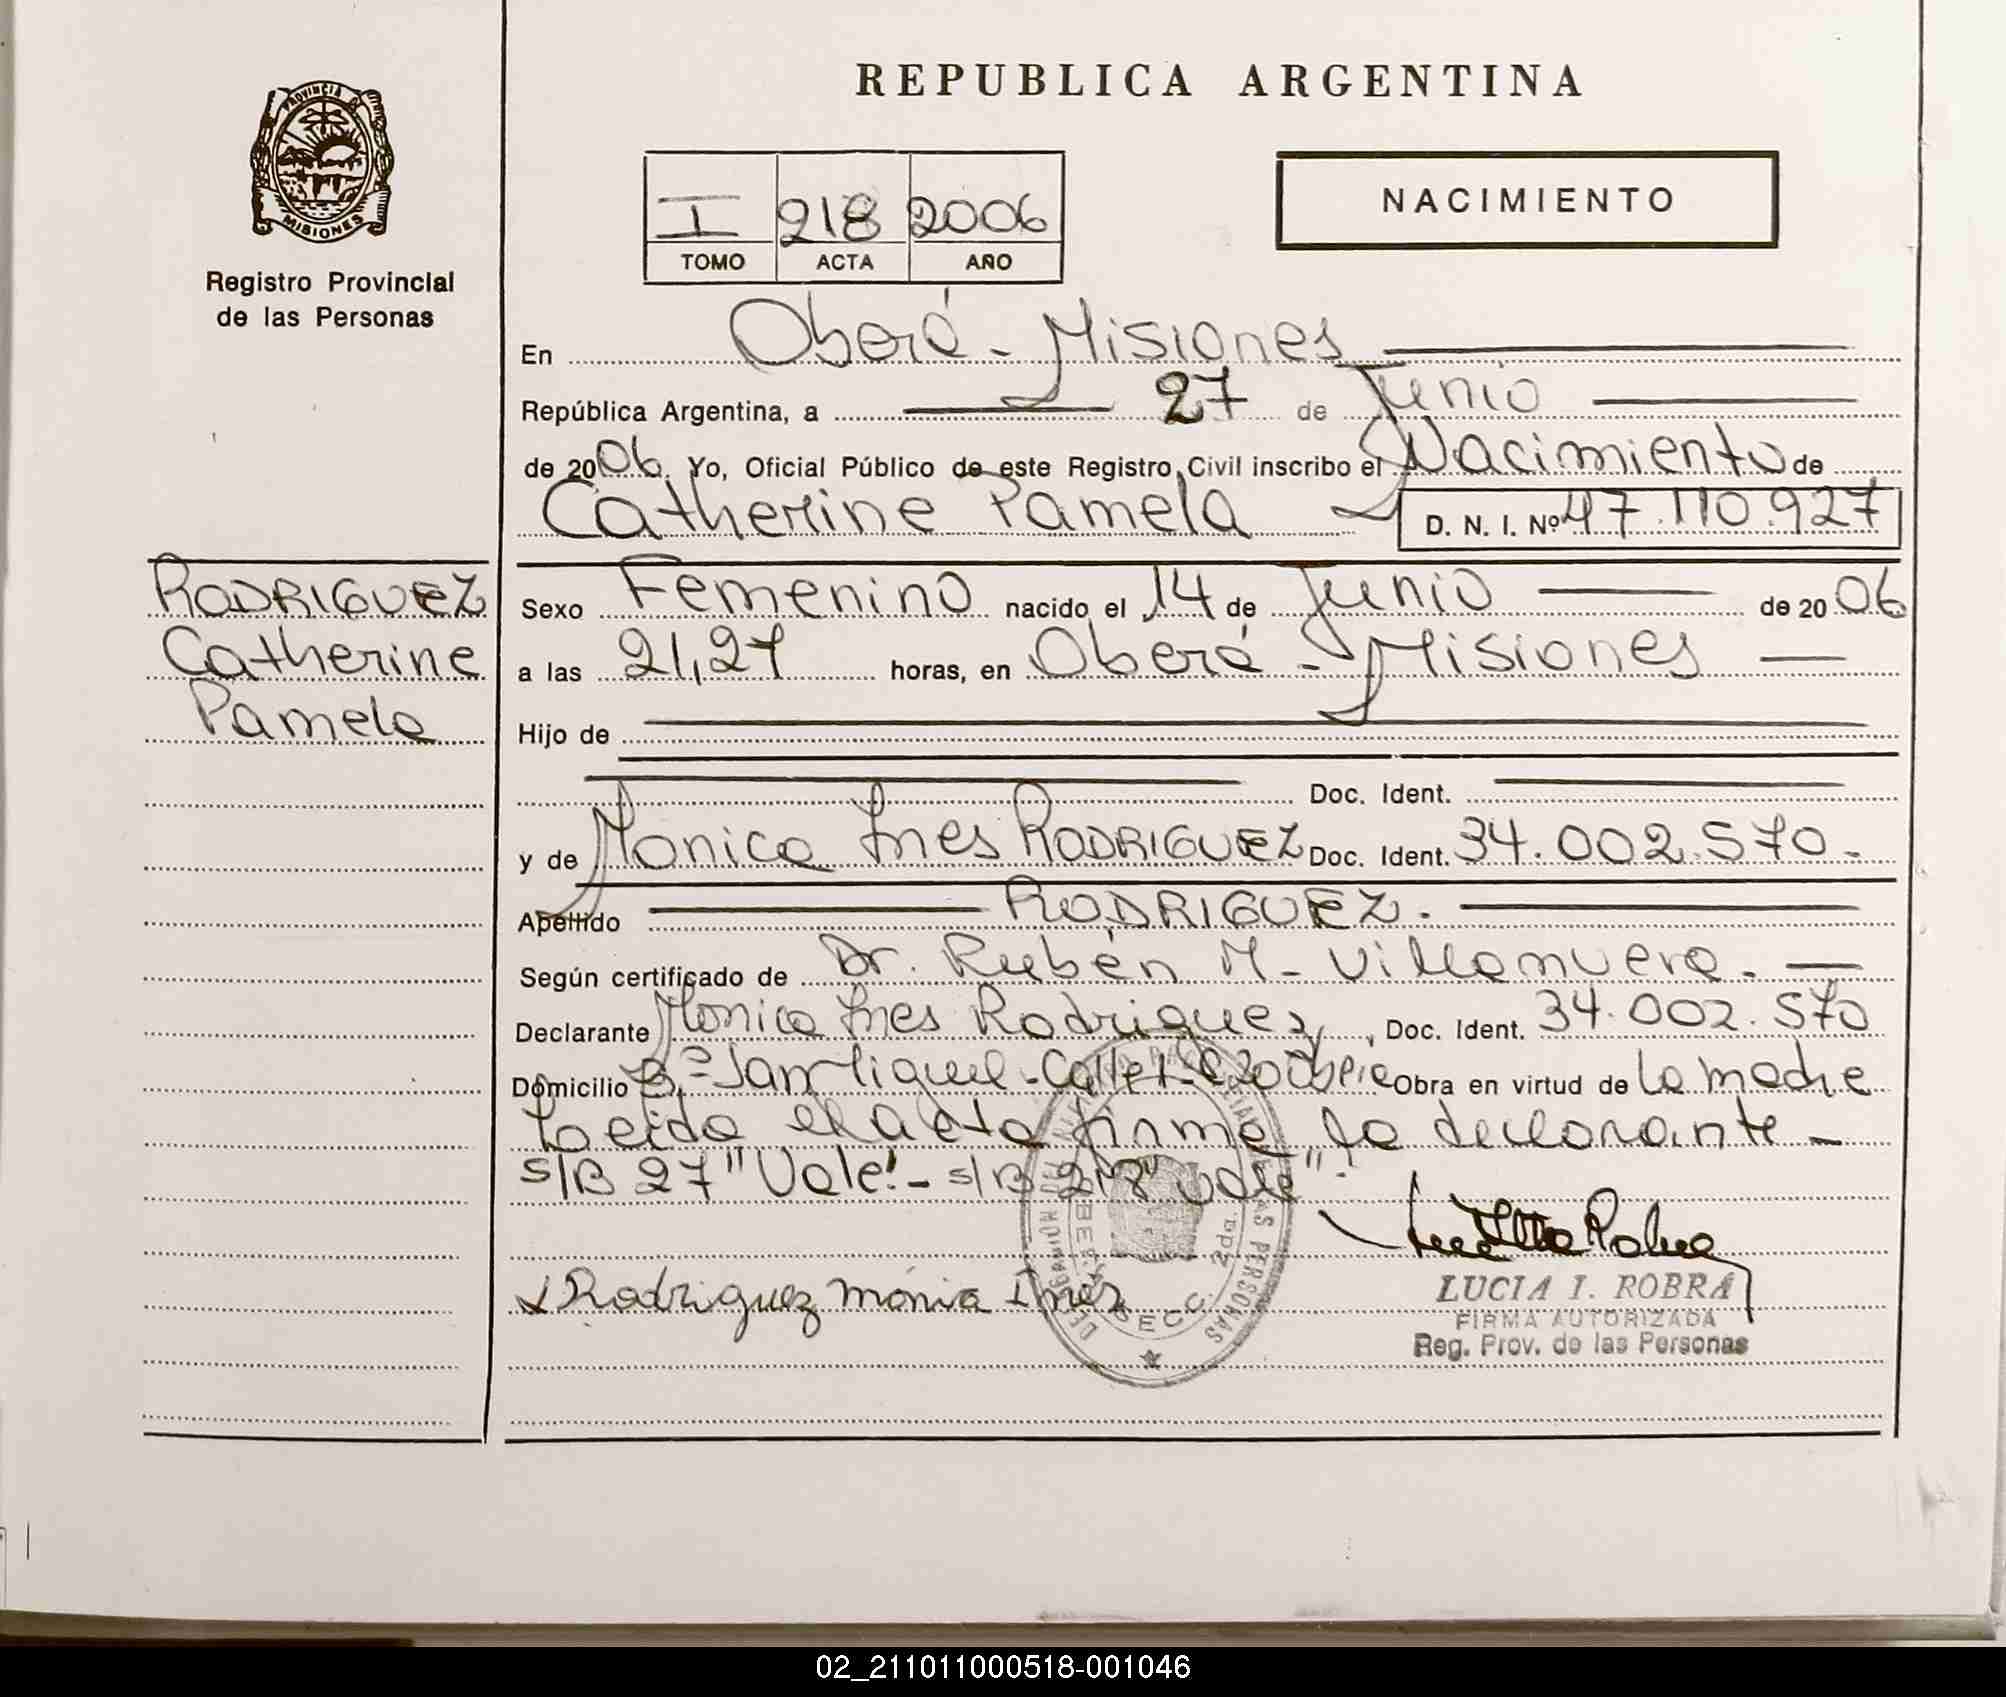 REPUBLICA ARGENTINA
PROVINCIA DE
MISIONES
Registro Provincial
de las Personas
I 218 2006
TOMO ACTA AÑO
NACIMIENTO
En Oberá - Misiones
República Argentina, a 27 de Junio
de 2006. Yo, Oficial Público de este Registro Civil inscribo el Nacimiento de
Catherine Pamela D. N. I. Nº 47.110.927
RODRIGUEZ
Catherine
Pamela
Sexo Femenino nacido el 14 de Junio de 2006
a las 21,27 horas, en Oberá - Misiones
Hijo de
Doc. Ident.
y de Monica Ines RODRIGUEZ Doc. Ident. 34.002.570.
Apellido RODRIGUEZ.
Según certificado de Dr. Rubén M. Villanueva.
Declarante Monica Ines Rodriguez, Doc. Ident. 34.002.570
Domicilio Bº San Miguel - Calle Obra en virtud de La madre
Leida el acta firma la declarante -
S/B 27 "Vale" - S/B 218 "Vale".
Rodriguez Mónica Inez
LUCIA I. ROBRA
FIRMA AUTORIZADA
Reg. Prov. de las Personas
02_211011000518-001046